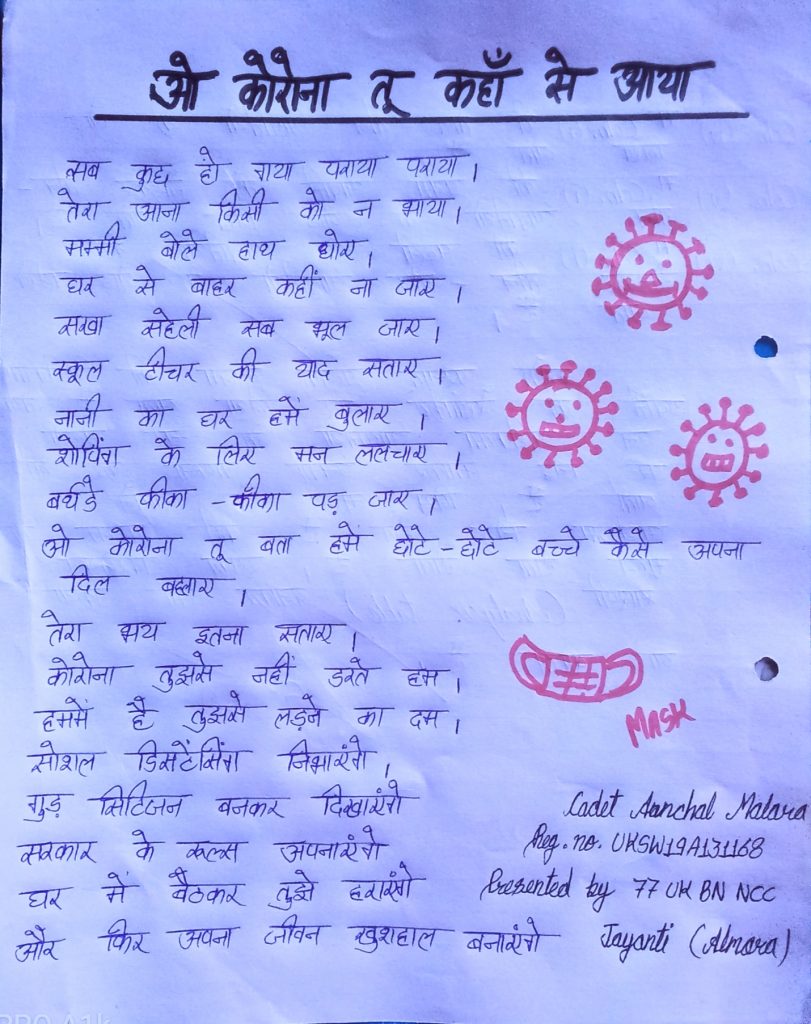 ओ कोरोना तू कहाँ से आया
सब कुछ हो गया पराया पराया ।
तेरा आना किसी को न भाया ।
मम्मी बोले हाथ धोए ।
घर से बाहर कहीं ना जाए ।
सखा सहेली सब भूल जाए ।
स्कूल टीचर की याद सताए ।
नानी का घर हमें बुलाए ।
शोपिंग के लिए मन ललचाए ।
बर्थडे फीका - फीका पड़ जाए ।
ओ कोरोना तू बता हमें छोटे - छोटे बच्चे कैसे अपना
दिल बहलाए ।
तेरा भय इतना सताए ।
कोरोना तुझसे नहीं डरते हम ।
हममें है तुझसे लड़ने का दम ।
MASK
सोशल डिसटेंसिंग निभाएंगे ।
गुड़ सिटिजन बनकर दिखाएंगे
सरकार के रूल्स अपनाएंगे
घर में बैठकर तुझे हराएंगे
और फिर अपना जीवन खुशहाल बनाएंगे
Cadet Aanchal Malara
Reg. no. UKSW19A131168
Presented by 77 UK BN NCC
Jayanti (Almora)